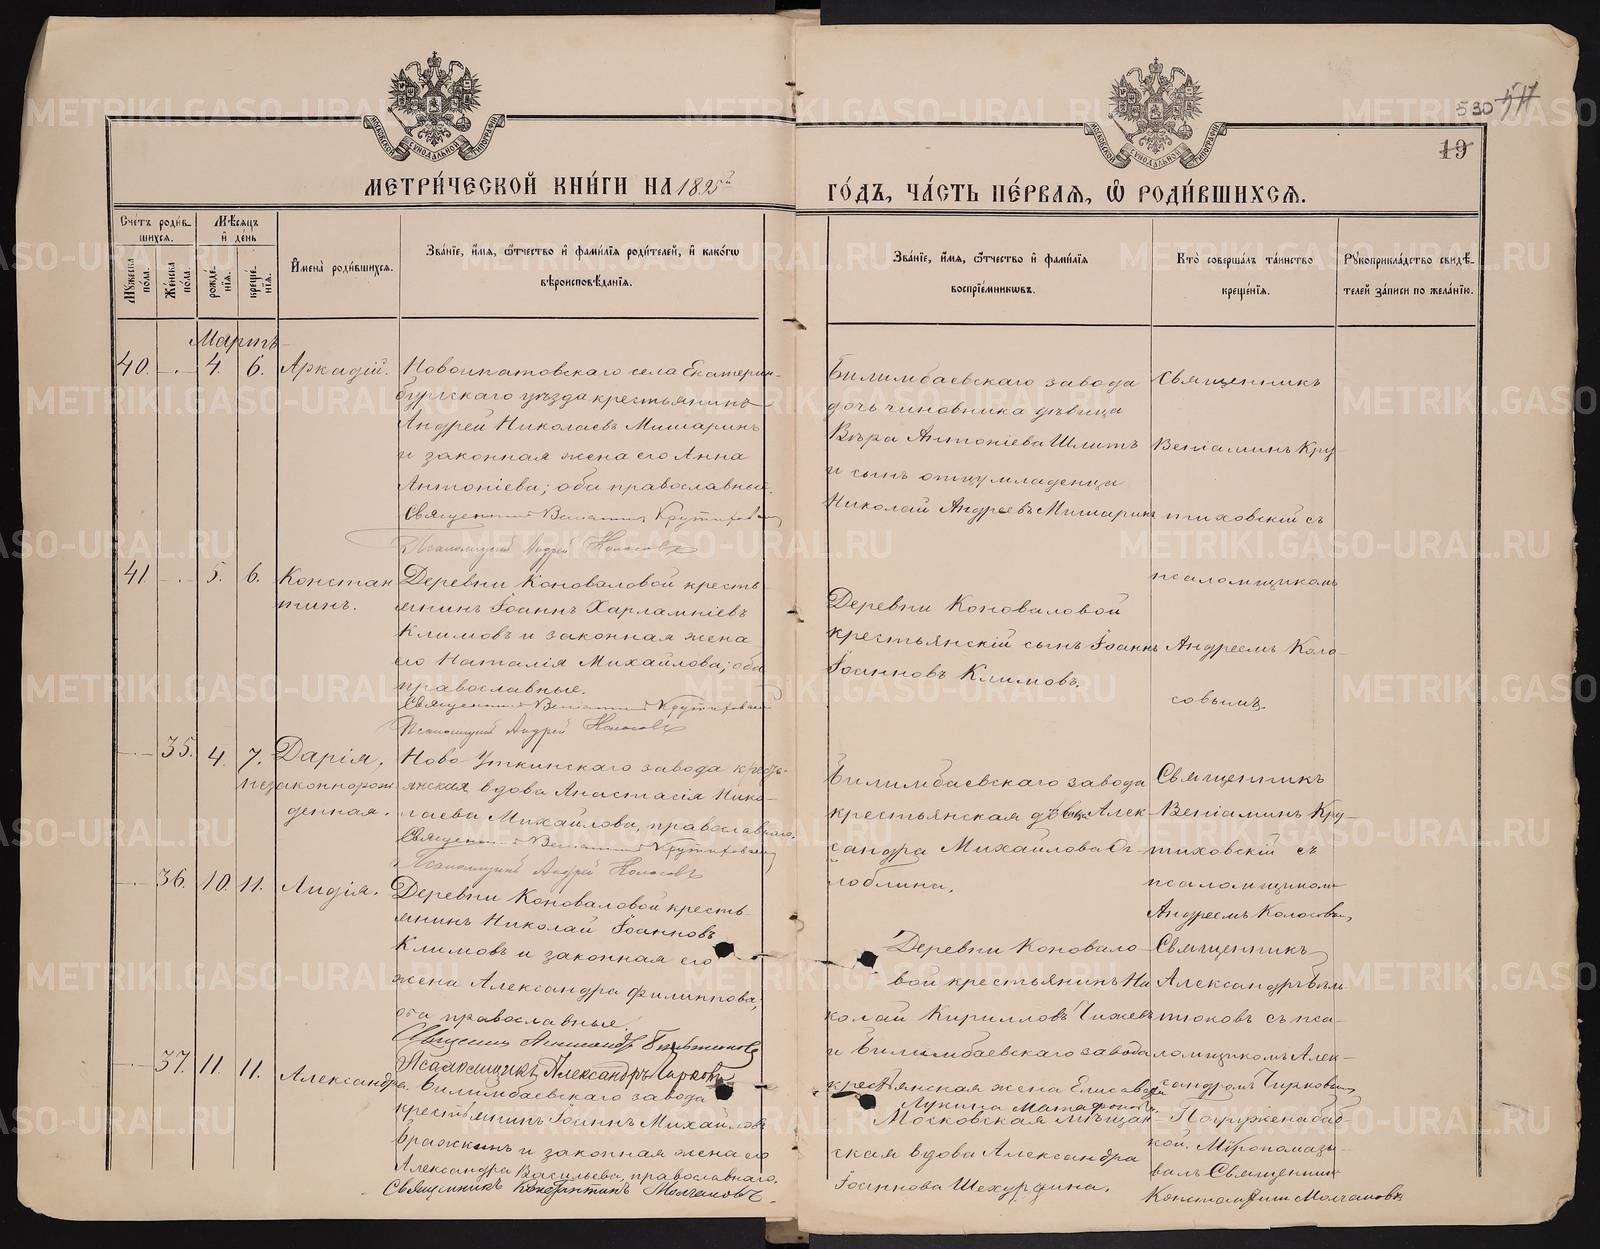 530 517
19
МОСКОВСКОЙ СѴНОДАЛЬНОЙ ТИПОГРАФІИ
МОСКОВСКОЙ СѴНОДАЛЬНОЙ ТИПОГРАФІИ
МЕТРИ́ЧЕСКОЙ КНИ́ГИ НА 1895й
ГО́ДЪ, ЧА́СТЬ ПЕ́РВАЯ, Ѽ РОДИ́ВШИХСЯ.
Сче́тъ роди́в-
шихся.
Му́жеска по́ла.
Же́нска по́ла.
Мѣ́сяцъ
и́ де́нь
рожде́-
нїя.
креще́-
нїя.
И҆мена̀ роди́вшихся.
Зва́нїе, и҆́мя, ѻ҆́тчество и҆ фами́лїя роди́телей, и҆ како́гѡ
вѣроисповѣ́данїя.
Зва́нїе, и҆́мя, ѻ҆́тчество и҆ фами́лїя
воспрїе́мникѡвъ.
Кто̀ соверша́лъ та́инство
креще́нїя.
Рꙋкоприкла́дство свидѣ́-
телей за́писи по жела́нїю.
Мартъ
40. - 4. 6. Аркадій.
Новоипатовскаго села Екатерин-
бургскаго уѣзда крестьянинъ
Андрей Николаевъ Мишаринъ
и законная жена его Анна
Антоніева; оба православные.
Священникъ Веніаминъ Крутиховскій
Псаломщикъ Андрей Колосовъ
Билимбаевскаго завода
дочь чиновника дѣвица
Вѣра Антоніева Шлитъ
и сынъ отцу младенца
Николай Андреевъ Мишаринъ
Священникъ
Веніаминъ Кру-
тиховскій съ
псаломщикомъ
Андреемъ Коло-
совымъ.
41 - 5. 6. Констан
тинъ.
Деревни Коноваловой кресть-
янинъ Іоаннъ Харлампіевъ
Климовъ и законная жена
его Наталія Михайлова; оба
православные.
Священникъ Веніаминъ Крутиховскій
Псаломщикъ Андрей Колосовъ
Деревни Коноваловой
крестьянскій сынъ Іоаннъ
Іоанновъ Климовъ.
- 35. 4. 7. Дарія,
незаконнорож
денная.
Ново-Уткинскаго завода кресть-
янская вдова Анастасія Нико-
лаева Михайлова, православнаго.
Священникъ Веніаминъ Крутиховскій
Псаломщикъ Андрей Колосовъ
Билимбаевскаго завода
крестьянская дѣвица Алек
сандра Михайлова Ог-
лоблина.
Священникъ
Веніаминъ Кру-
тиховскій съ
псаломщикомъ
Андреемъ Колосовым
- 36. 10. 11. Лидія.
Деревни Коноваловой кресть-
янинъ Николай Іоанновъ
Климовъ и законная его
жена Александра Филиппова,
оба православные.
Священникъ Александръ
Псаломщикъ Александръ Чирковъ
Деревни Коновало-
вой крестьянинъ Ни
колай Кирилловъ Чижевъ
и Билимбаевскаго завода
крестьянская жена Елисавета
Лукина
Священникъ
Александръ
тюковъ съ пса-
ломщикомъ Алек-
сандромъ Чирковым
- 37. 11. 11. Александра.
Билимбаевскаго завода
крестьянинъ Іоаннъ Михайловъ
Бражкинъ и законная жена его
Александра Васильева, православнаго.
Священникъ Константинъ Молчановъ.
Московская мѣщан-
ская вдова Александра
Іоаннова
Погружена баб-
кой. Мѵропомазы-
валъ Священникъ
Константинъ Молчановъ
METRIKI.GASO-URAL.RU